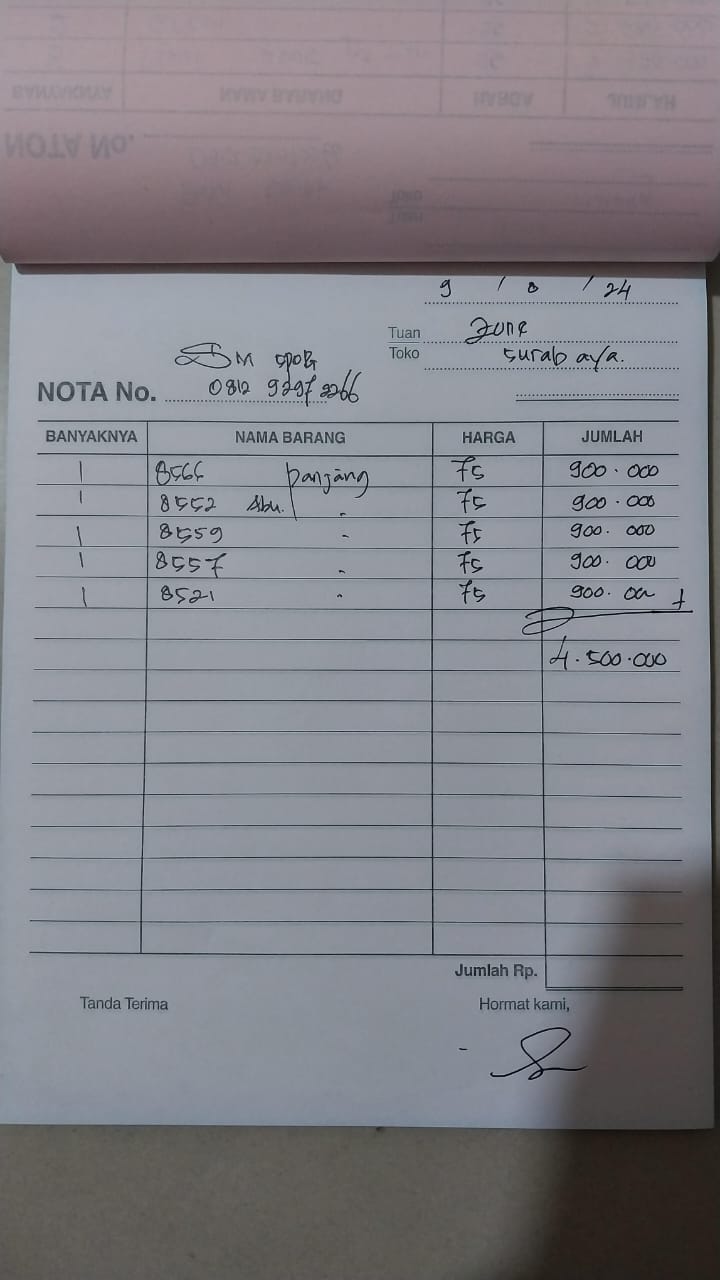 9 / 8 / 24
Tuan June
Toko Surabaya.
SM
NOTA No. 0812 9297 2266
BANYAKNYA NAMA BARANG HARGA JUMLAH
1 8566 panjang 75 900.000
1 8552 Abu. " 75 900.000
1 8559 " 75 900.000
1 8557 " 75 900.000
1 8521 " 75 900.00
4.500.000
Jumlah Rp.
Tanda Terima Hormat kami,